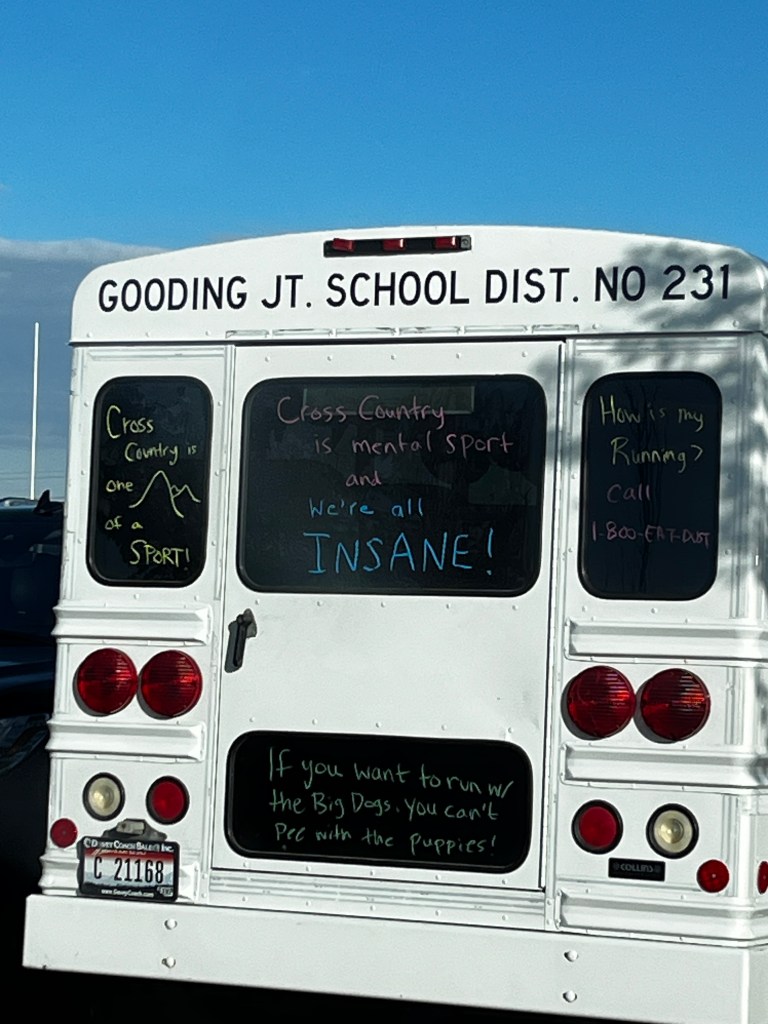 GOODING JT. SCHOOL DIST. NO 231
Cross
Country is
one
of a
SPORT!
Cross Country
is mental sport
and
We're all
INSANE!
How is my
Running?
Call
1-800-EAT-DUST
If you want to run w/
the Big Dogs, you can't
Pee with the puppies!
C 21168
COLLINS